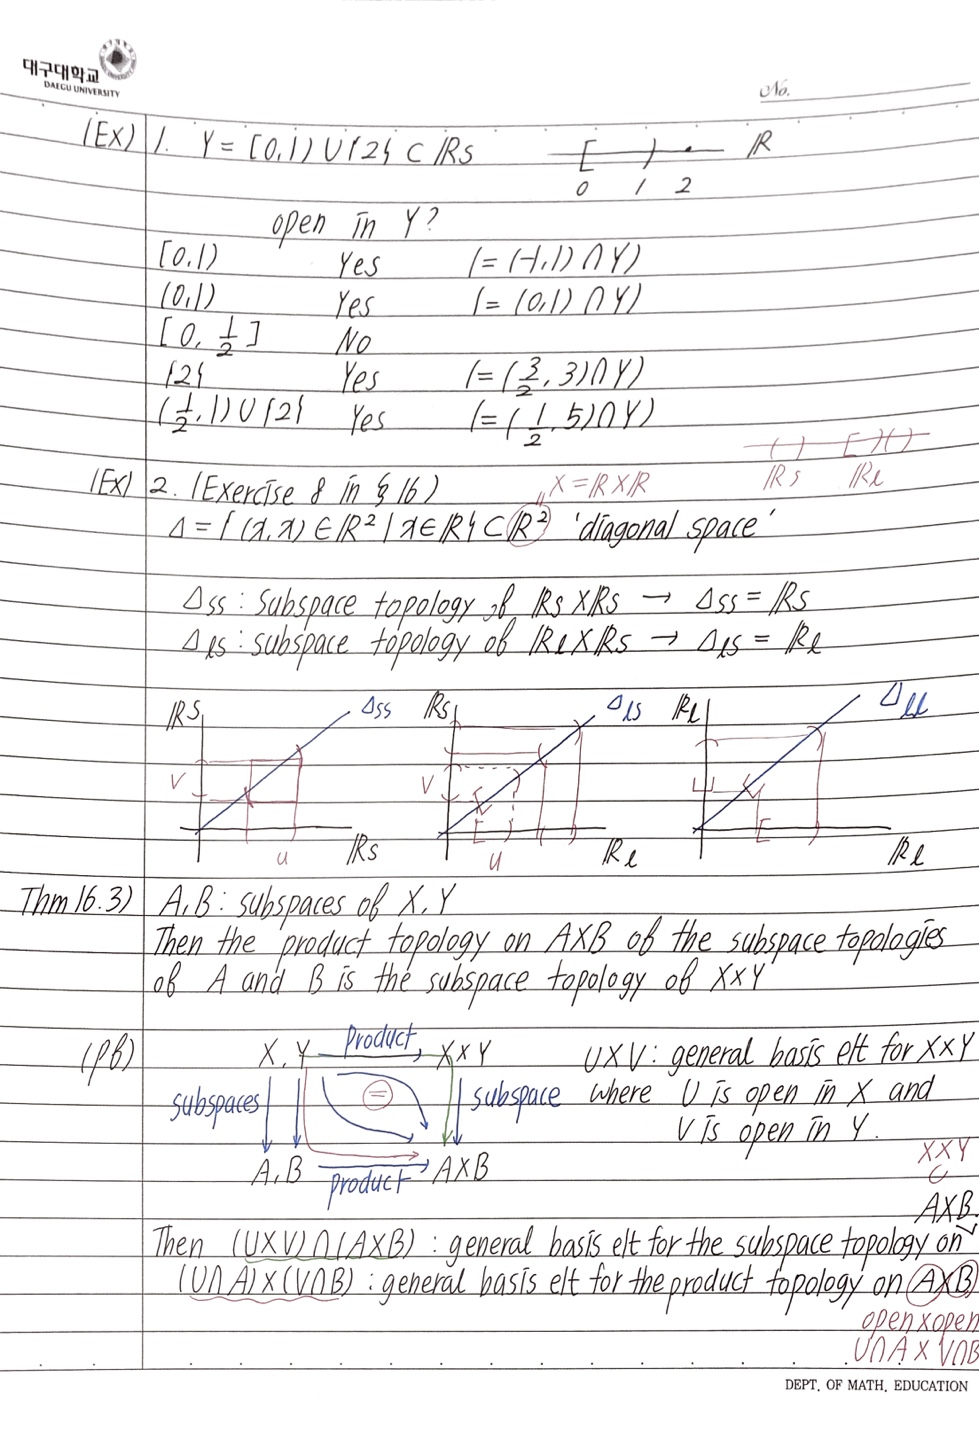 대구대학교
DAEGU UNIVERSITY
No.
(Ex) 1. Y = [0,1) ∪ {2} ⊂ ℝs
[ ) ℝ
0 1 2
open in Y?
[0,1) Yes (= (-1,1) ∩ Y)
(0,1) Yes (= (0,1) ∩ Y)
[0, 1/2] No
{2} Yes (= (3/2, 3) ∩ Y)
(1/2, 1) ∪ {2} Yes (= (1/2, 5) ∩ Y)
ℝs ℝl
(Ex) 2. (Exercise 8 in § 16) X = ℝ×ℝ
Δ = {(x, x) ∈ ℝ² | x ∈ ℝ} ⊂ ℝ² 'diagonal space'
Δss : subspace topology of ℝs × ℝs → Δss = ℝs
Δls : subspace topology of ℝl × ℝs → Δls = ℝl
ℝs Δss ℝs Δls ℝl Δll
V V
u ℝs u ℝl ℝl
Thm 16.3) A, B : subspaces of X, Y
Then the product topology on A×B of the subspace topologies
of A and B is the subspace topology of X×Y
(pf) X, Y Product X×Y U×V : general basis elt for X×Y
subspaces = subspace where U is open in X and
V is open in Y.
A, B product A×B
X×Y
⊂
A×B.
Then (U×V)∩(A×B) : general basis elt for the subspace topology on
(U∩A)×(V∩B) : general basis elt for the product topology on A×B
open×open
U∩A × V∩B
DEPT. OF MATH. EDUCATION